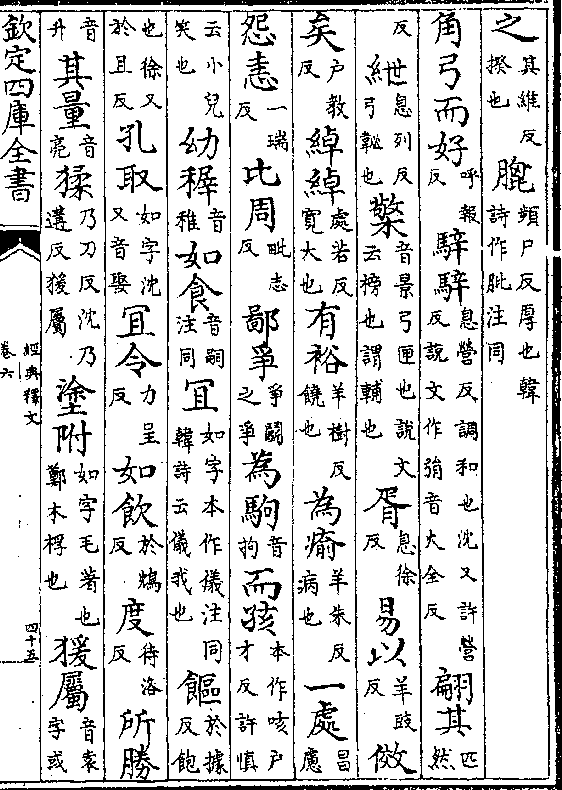 之其維反揆也膍頻尸反厚也韓詩作肶注同
角弓而好呼報反騂騂息營反調和也沈又許營反說文作弲音火全反翩其匹然
反紲息列反弓䪐也檠音景弓匣也說文云榜也謂輔也胥息徐反易以羊豉反傚
矣户教反綽綽處若反寛大也有裕羊樹反饒也為瘉羊朱反病也一處昌慮
怨恚一瑞反比周毗志反鄙爭爭鬭之爭為駒音拘而孩本作咳户才反許慎
云小兒笑也幼稺音稚如食音嗣注同冝如字本作儀注同韓詩云儀我也饇於據反飽
也徐又於且反孔取如字沈又音娶冝令力呈反如飲於鴆反度待洛反所勝
音升其量音亮猱乃刀反沈乃遘反猨屬塗附如字毛著也鄭木桴也猨屬音袁字或
欽定四庫全書
經典釋文
卷六
四十五